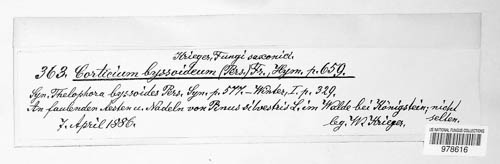 Krieger, Fungi saxonici.
363. Corticium byssoideum (Pers.) Fr., Hym. p. 659.
Syn. Thelophora byssoides Pers. Syn. p. 577. – Winter, I. p. 329.
An faulenden Aesten u. Nadeln von Pinus silvestris L. im Walde bei Königstein; nicht selten.
7. April 1886. leg. W. Krieger.
US NATIONAL FUNGUS COLLECTIONS
978616